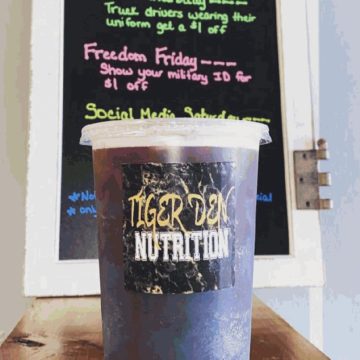 Truck drivers wearing their
uniform get a $1 off
Freedom Friday----
Show your military ID for
$1 off
Social Media Saturday---
TIGER DEN
NUTRITION